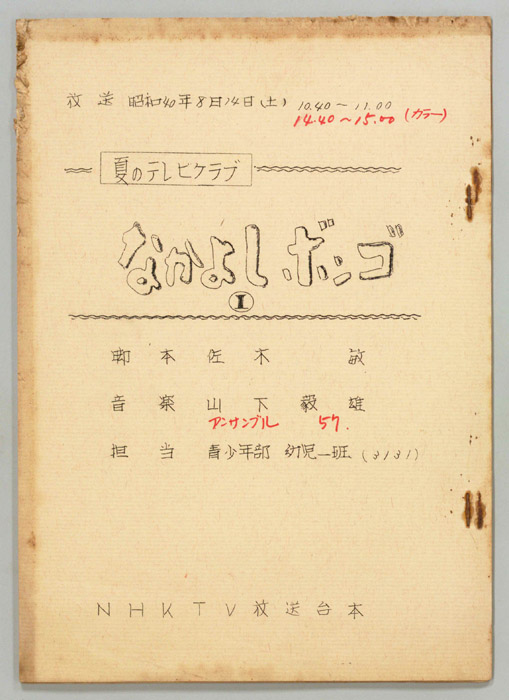 放送 昭和40年8月14日(土) 10.40~11.00
14.40~15.00 (カラー)
夏のテレビクラブ
なかよしボンゴ
I
脚本 佐木 敏
音楽 山下毅雄
アンサンブル 57.
担当 青少年部 幼児一班 (3131)
NHKTV放送台本